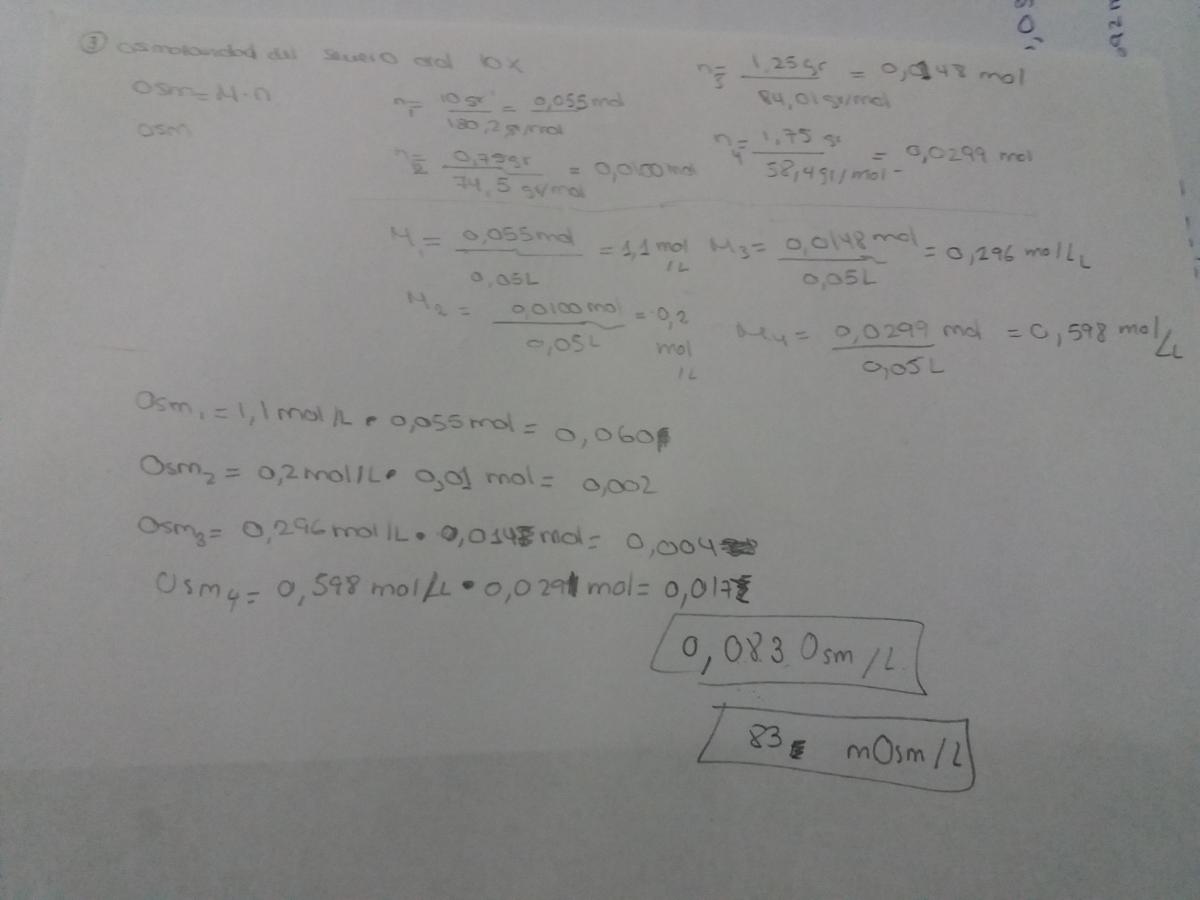 ③ Osmolaridad del suero oral 10x
Osm = M · n
Osm
n₁ = 10 gr / 180,2 gr/mol = 0,055 mol
n₂ = 0,75 gr / 74,5 gr/mol = 0,0100 mol
n₃ = 1,25 gr / 84,01 gr/mol = 0,0148 mol
n₄ = 1,75 gr / 58,4 gr/mol = 0,0299 mol
M₁ = 0,055 mol / 0,05L = 1,1 mol/L
M₃ = 0,0148 mol / 0,05L = 0,296 mol/L
M₂ = 0,0100 mol / 0,05L = 0,2 mol/L
M₄ = 0,0299 mol / 0,05L = 0,598 mol/L
Osm₁ = 1,1 mol/L • 0,055 mol = 0,060
Osm₂ = 0,2 mol/L • 0,01 mol = 0,002
Osm₃ = 0,296 mol/L • 0,014 mol = 0,004
Osm₄ = 0,598 mol/L • 0,029 mol = 0,017
0,083 Osm/L
83 mOsm/L